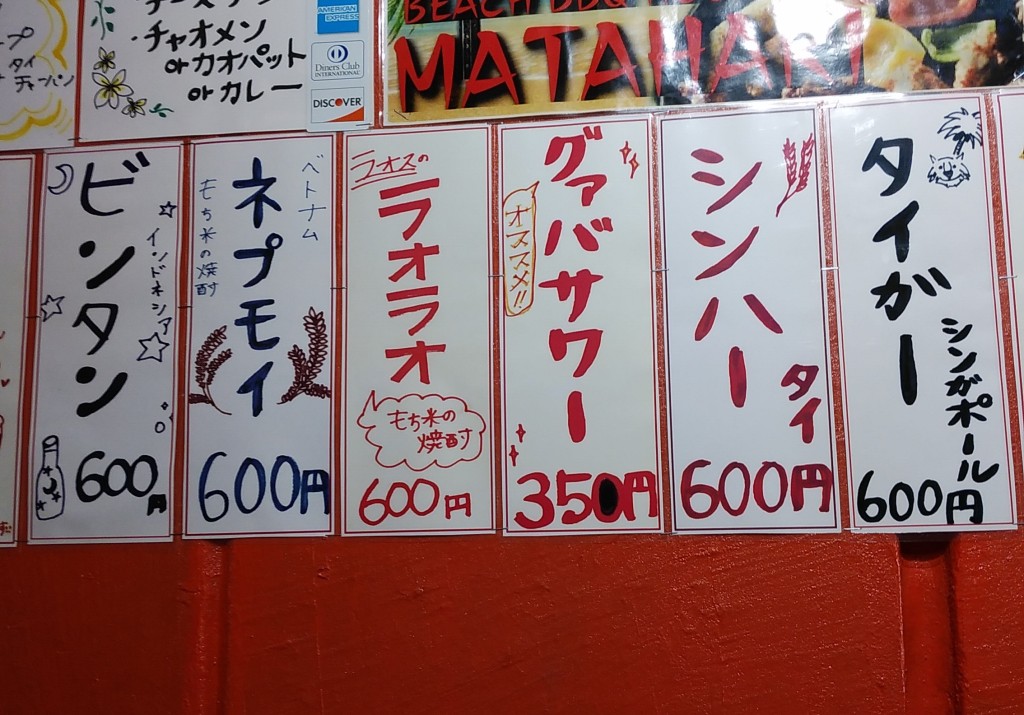 チャオメン
orカオパット
orカレー
AMERICAN EXPRESS
Diners Club
INTERNATIONAL
DISCOVER
BEACH BBQ
MATAHARI
タイ
チャーハン
ビンタン
インドネシア
600円
ベトナム
ネプモイ
もち米の焼酎
600円
ラオスの
ラオラオ
もち米の
焼酎
600円
グァバサワー
オススメ!!
350円
シンハー
タイ
600円
タイガー
シンガポール
600円